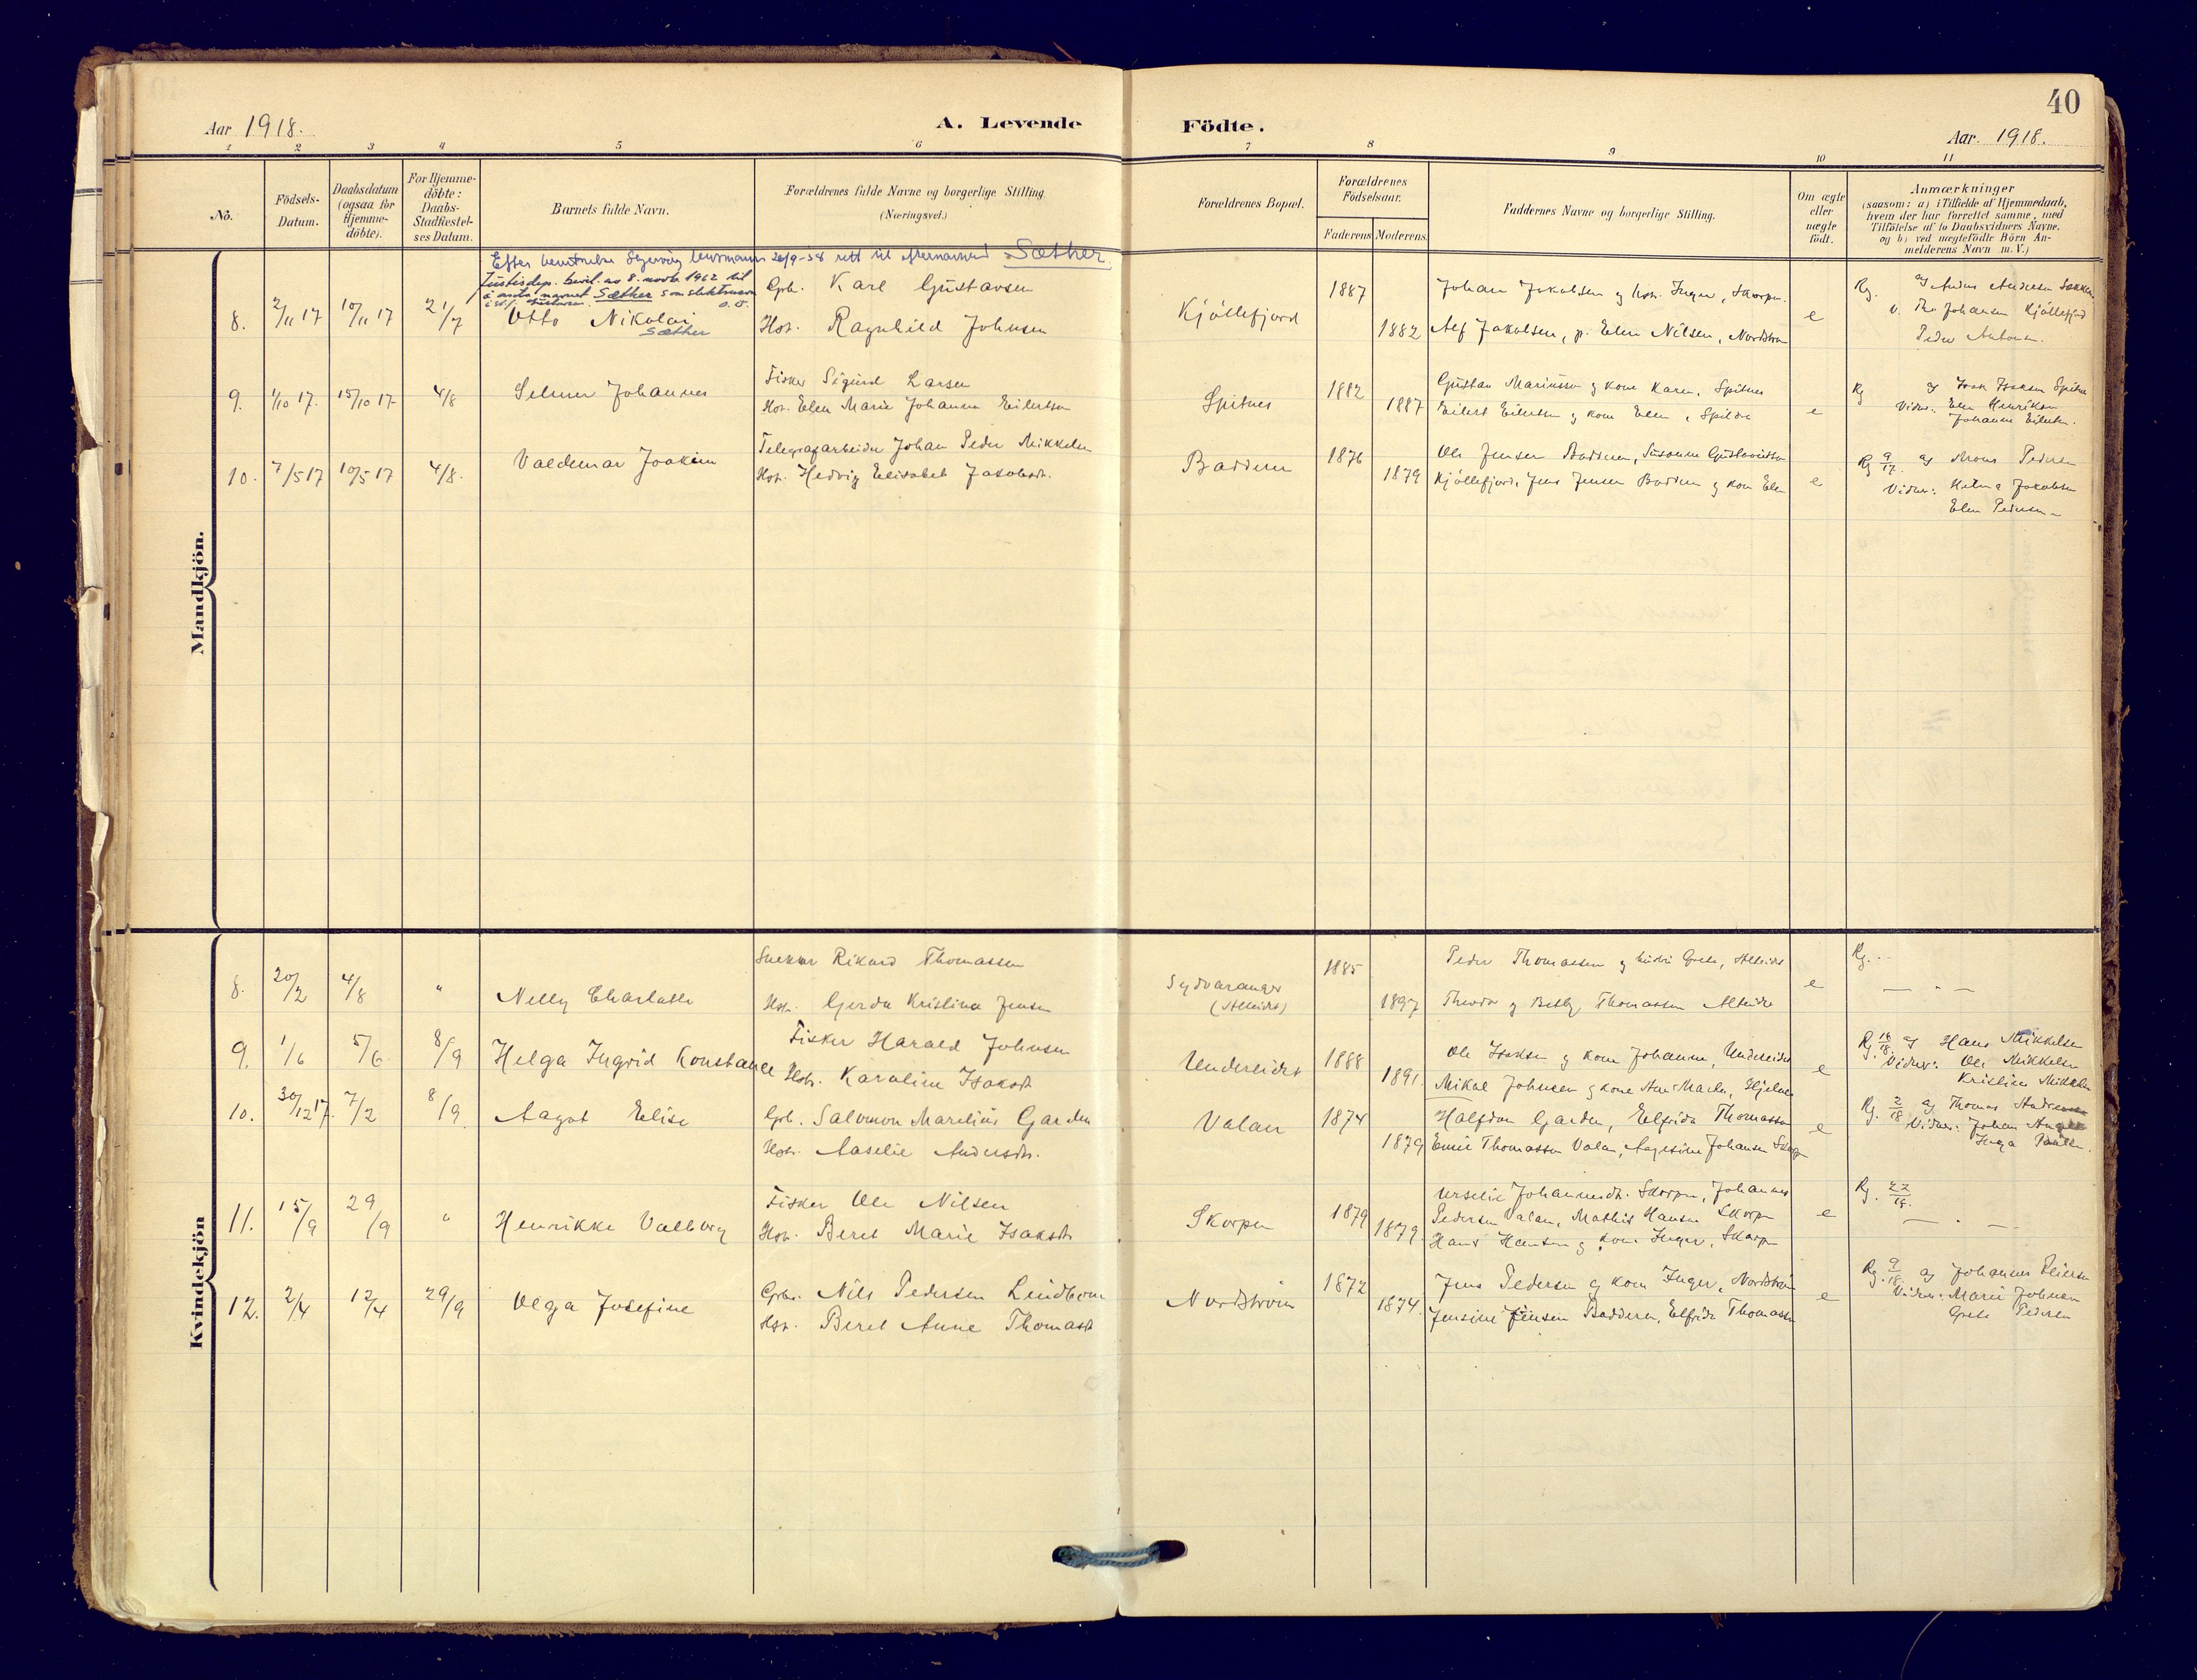 40
Aar 1918.
A. Levende
Födte.
Aar. 1918.
1 2 3 4 5 6 7 8 9 10 11
No.
Födsels-
Datum.
Daabsdatum
(ogsaa for
Hjemme-
döbte).
For Hjemme-
döbte:
Daabs-
Stadfæstel-
ses Datum.
Barnets fulde Navn.
Forældrenes fulde Navne og borgerlige Stilling
(Næringsvei.)
Forældrenes Bopæl.
Forældrenes
Födselsaar.
Faderens Moderens
Faddernes Navne og borgerlige Stilling.
Om ægte
eller
uægte
födt.
Anmærkninger
(saasom: a) i Tilfælde af Hjemmedaab,
hvem der har forrettet samme, med
Tilföielse af to Daabsvidners Navne.
og b) ved uægtefödte Börn An-
melderens Navn m. V.)
Mandkjön.
Efter 26/9-58 rett til etternavnet Sæther.
Justisdep. bevil. av 8. novb. 1962 til
å anta navnet Sæther som slektsnavn
8. 2/11 17 10/11 17 21/7 Otto Nikolai
Sæther
Gbr. Karl Gustavsen
Hst. Ragnhild Johnsen
Kjöllefjord 1887 1882
Johan Jakobsen og kon. Inger, Skorpa.
Alf Jakobsen, p. Elen Nilsen, Nordstrøm
e
Rg. af Anders Andersen
v. Johansen Kjöllefjord
Peder
9. 1/10 17. 15/10 17 4/8 Selmer Johannes
Fisker Sigurd Larsen
Hst. Elen Marie Johanna Eilertsen
Spitnes 1882 1887
Gustav Mariussen og kone Karen, Spitnes
Eilert Eilertsen og kone Elen, Spildra
e
Rg af Isak Isaksen
Vidner: Elen Henriksen
Johanne Eilertsn.
10. 7/5 17 10/5 17 4/8. Valdemar Joakim
Telegrafarbeider Johan Peder Mikkelsen
Hst. Hedvig Elisabet Jakobsdt.
Badderen 1876 1879
Ole Jensen Badderen, Susanne Gustavsdtr
Kjöllefjord, Jens Jensen Badderen og kone Elen
e
Rg 9/17. af Mons Pedersen
Vidner: Helma Jakobsen
Elen Pedersen
Kvindekjön
8. 20/2 4/8 " Nelly Charlotte
Snekker Rikard Thomassen
Hst. Gerda Kristina Jensen
Sydvaranger
(Alteidet)
1885 1897
Peder Thomassen og hustru Grete, Alteidet
Theodor og Betzy Thomassen Alteidet
e
Rg. --
— " —
9. 1/6 5/6 8/9 Helga Ingrid Konstance
Fisker Harald Johnsen
Hst. Karoline Isaksdt
Undereidet 1888 1891.
Ole Isaksen og kone Johanne, Undereidet
Mikal Johnsen og kone Ane Marta, Hjelnes
e
Rg. 16/18. af Hans Mikkelsen
Vidner: Ole Mikkelsen
Kristine Mikkelsen
10. 30/12 17. 7/2 8/9 Aagot Elise
Gbr. Salomon Marelius Garden
Hst. Aaselie Andersdt.
Valan 1874 1879
Halfdan Garden, Elfrida Thomassen
Emil Thomassen Valan, Aagesine Johansen Skorpa
e
Rg. 2/18 af Thomas Andreassen
Vidner: Johan
Inga
11. 15/9 29/9 " Henrikke Valborg
Fisker Ole Nilsen
Hst. Beret Marie Isaksdt.
Skorpen 1879 1879.
Urselie Johannesdt. Skorpen, Johannes
Pedersen Valan, Mathis Hansen Skorpn
Hans Hansen og kone Inger, Skorpn
e
Rg. 22/18.
— " —
12. 2/4 12/4 29/9 Olga Josefine
Gbr. Nils Pedersen Lindbom
Hst. Beret Anne Thomasdt
Nordström 1872 1874.
Jens Pedersen og kone Inger, Nordström
Jensine Jensen Badderen, Elfrida Thomassn
e
Rg. 9/18. af Johannes Peiersen
Vidner: Marie Johnsen
Grete Pedersen